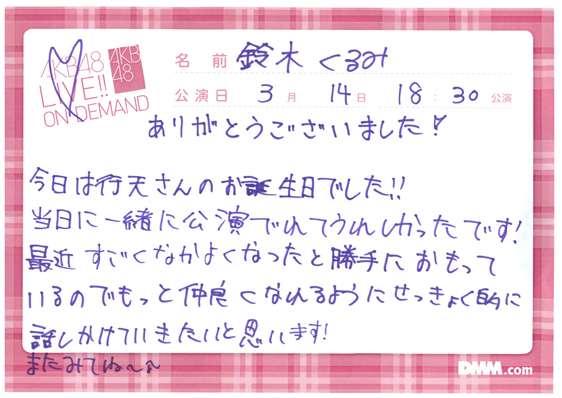 AKB48
LIVE!!
ON DEMAND
AKB
48
名前 鈴木くるみ
公演日 3月 14日 18:30公演
ありがとうございました!
今日は行天さんのお誕生日でした!!
当日に一緒に公演でれてうれしかったです!
最近すごくなかよくなったと勝手におもって
いるのでもっと仲良くなれるようにせっきょく的に
話しかけていきたいと思います!
またみてね〜
DMM.com